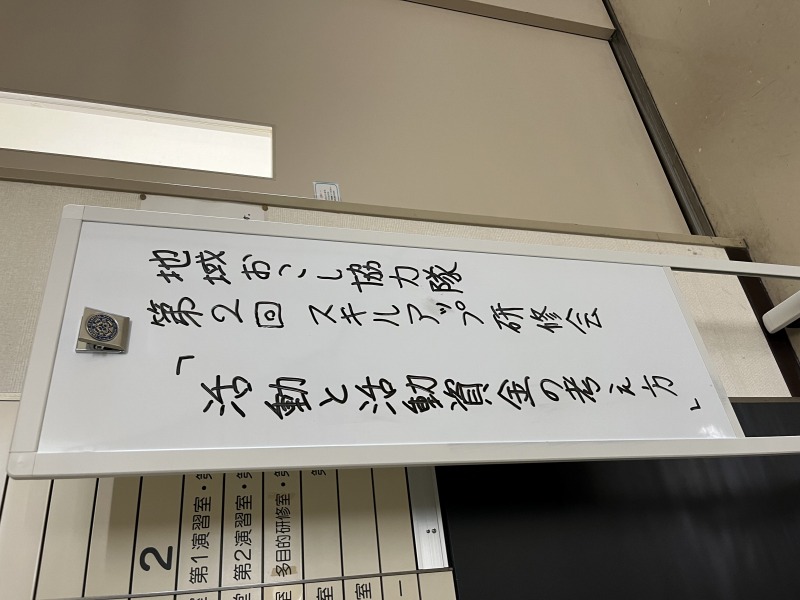 地域おこし協力隊
第2回 スキルアップ研修会
「活動と活動資金の考え方」
2
第1演習室・
第2演習室・
多目的研修室・